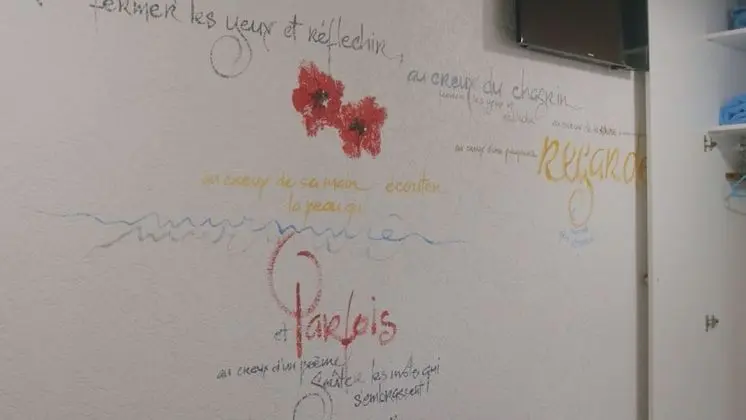 fermer les yeux et réflechir,
au creux du chagrin
au creux d'une paupière
REGARD
au creux de sa main écouter
la peau qui
et Parfois
au creux d'un poème
Goûter les mots qui
s'embrassent!